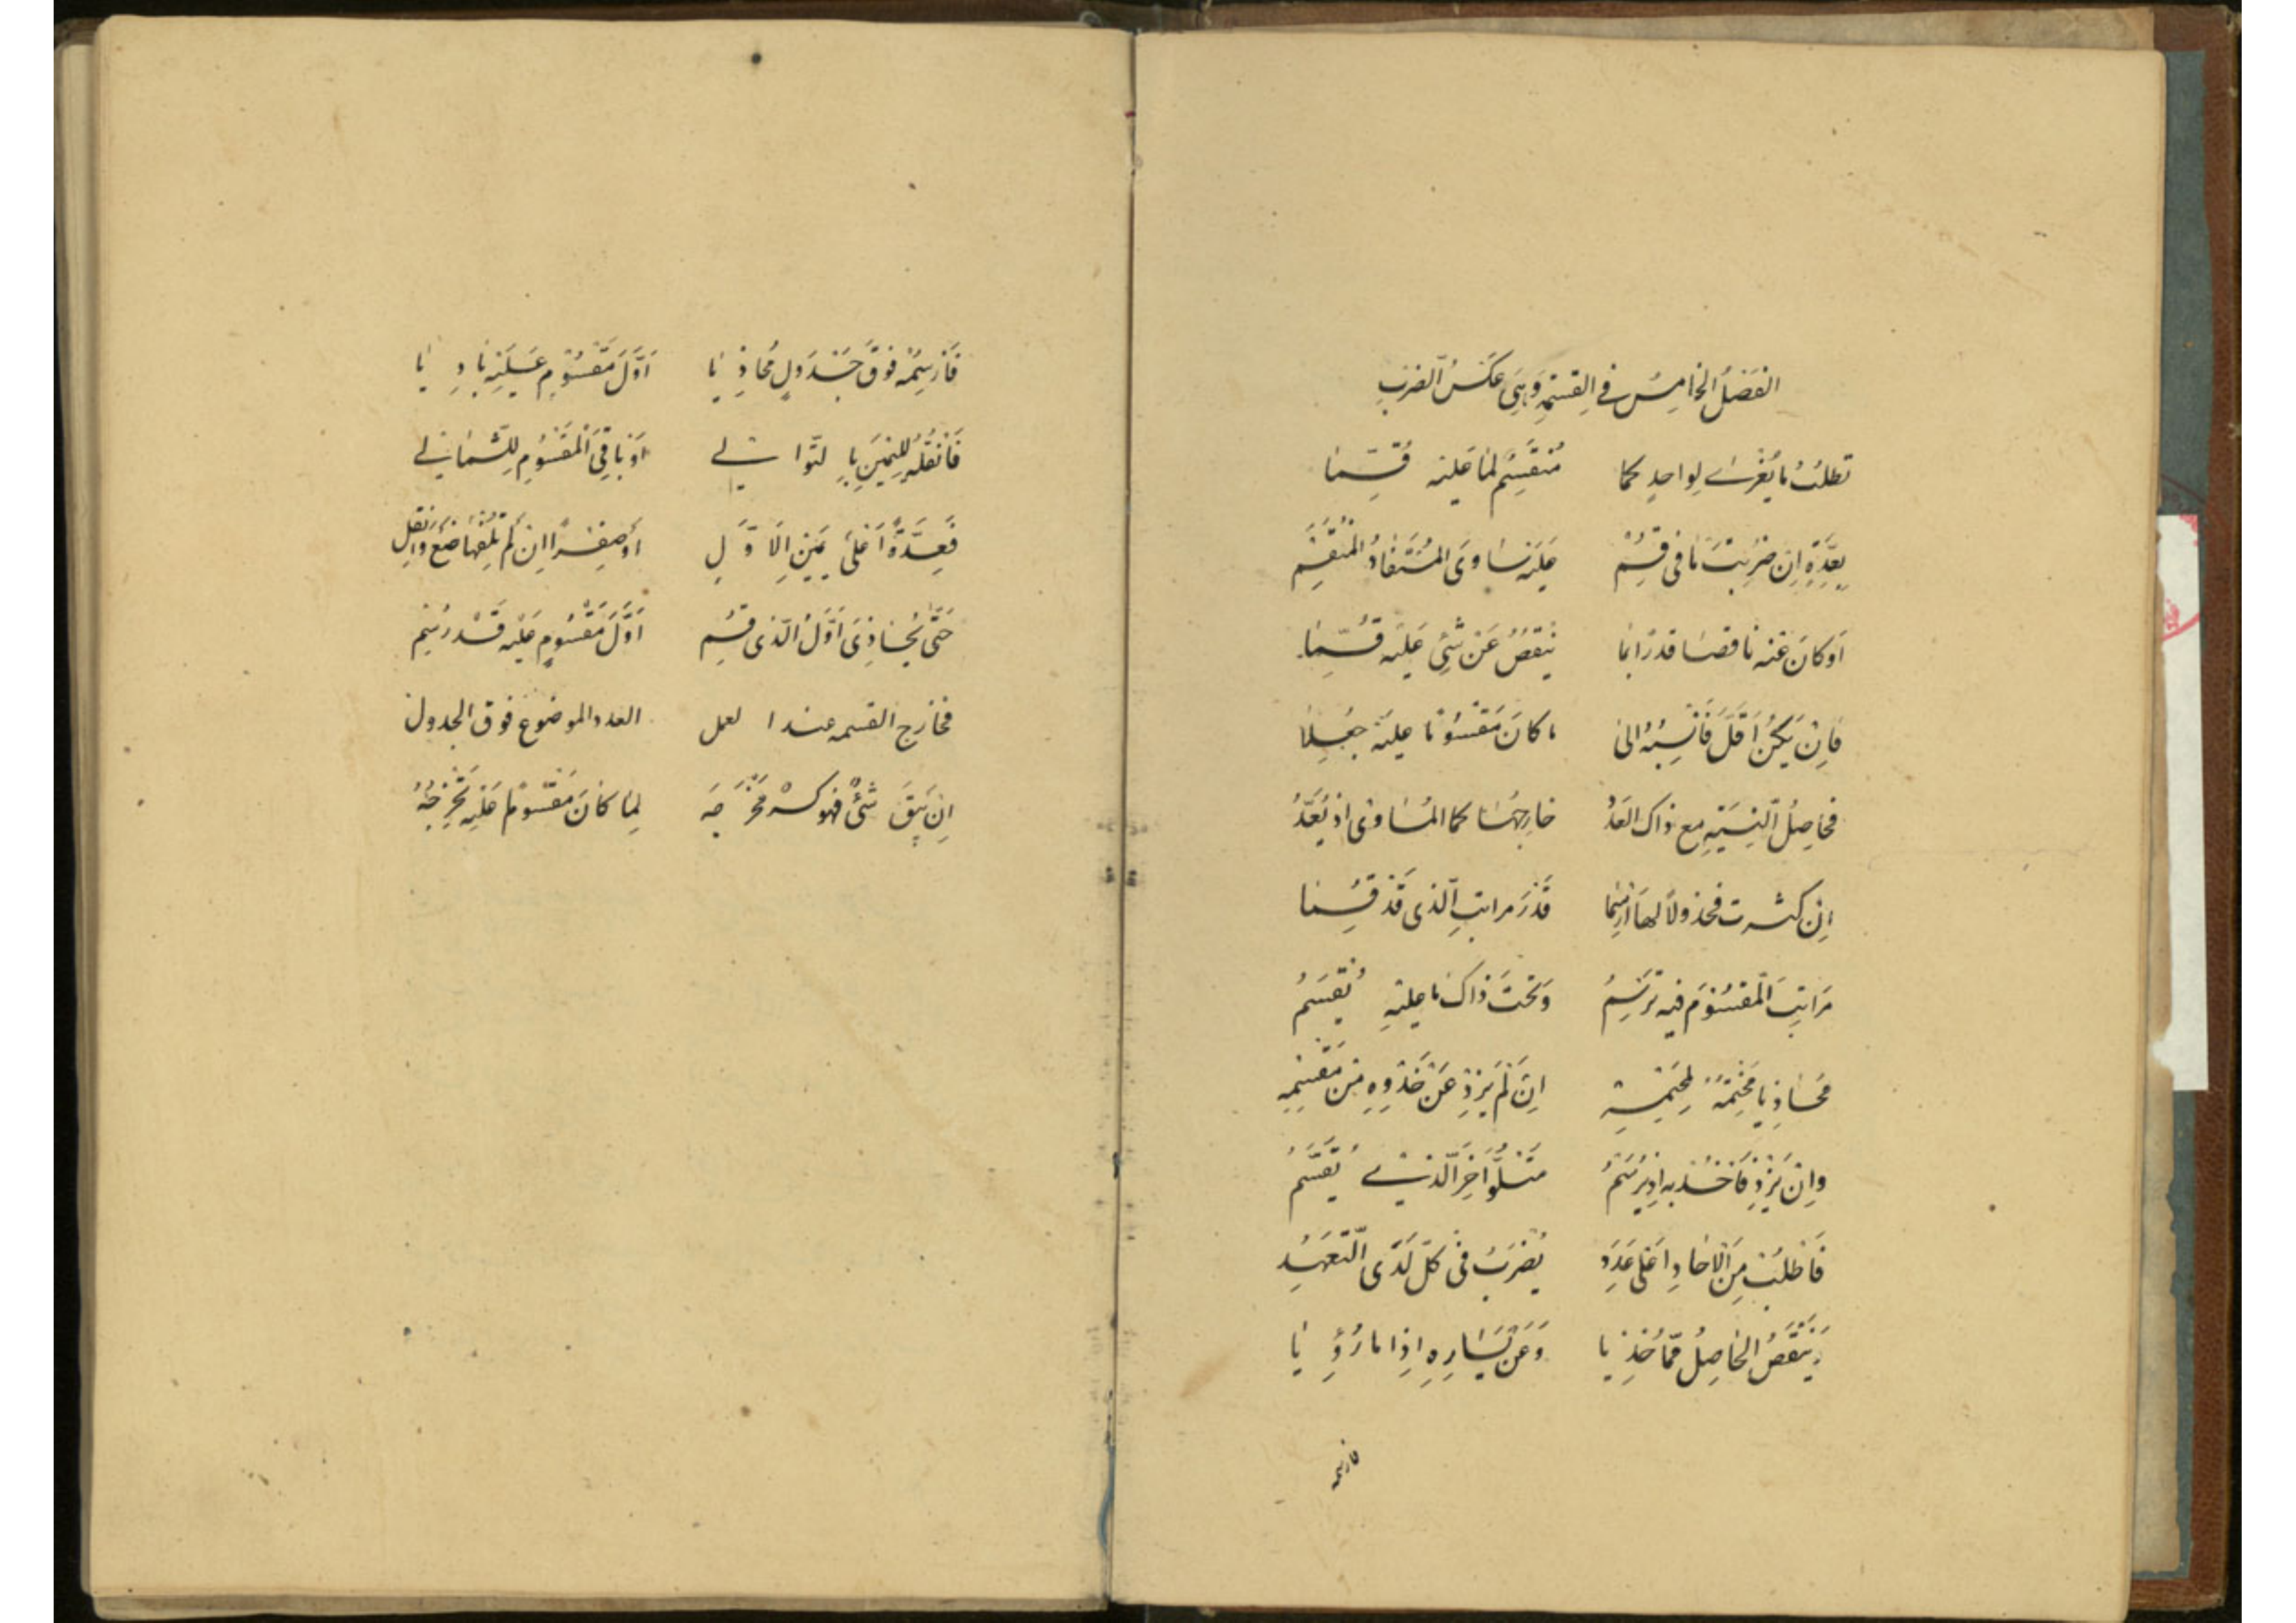 الفَصْلُ الخامِسُ فی القِسْمَةِ وَهِیَ عَکسُ الضَربِ
تطلبُ ما یُعْزیٰ لِواحِدٍ کما مُنقَسِمٌ لمٰا عَلیْه قُسِّمٰا
بِعِدَّةٍ اِن ضُرِبَتْ مٰا فی قُسِمْ عَلَیْه سٰاوَی المُسْتَفٰادُ المُنْقَسِمْ
اَو کانَ عَنْه ناقصٰا قدرًا بمٰا یَنقصُ عَنْ شَیْیٔ عَلَیْه قُسِّمٰا
فَاِنْ یَکُنْ اَقَلَّ فَانْسِبْهُ الیٰ ما کانَ مَقْسُومًا علیْه جُعِلٰا
فَحٰاصِلُ النِسْبَةِ مع ذاک العَدَدْ خارجُهٰا کما المُسٰاوی اذ یُعَدّْ
اِن کثرت فجدولاً لها ارْسِمٰا قَدْرَ مراتبِ الَّذی قَدْ قُسِمٰا
مَرَاتِبَ الْمَقسُومِ فیه تَرْتَسِمُ وَتحْتَ ذاکَ ما علیْهِ یُقْسَمُ
مُحٰاذِیا مُخْتَتَمَهُ لِمُخْتَتَمِهْ اِنْ لَمْ یَزِدْ عَنْ حَذْوِهِ مِنْ مَقْسِمِه
واِنْ یَزِدْ فَاخْذُ به اِذ یُرْسَمُ مَتْلُوَّ اٰخِرِ الَّذی یُقَسَّمُ
فَاطْلبْ مِنَ الْاٰحادِ اَعْلیٰ عَدَدِ یُضْرَبُ فی کُلٍّ لَدَی التَّعَهُّدِ
وَیُنْقَصُ الحٰاصِلُ مِمّا حُذِیا وَعَنْ یَسٰارِهِ اِذا ما رُؤِیا
فارسمه
فَارْسِمْهُ فَوْقَ جَدْوَلٍ مُحاذِیٰا اَوَّلَ مَقْسُوْمٍ عَلَیْهِ بٰادِیٰا
فَانْقُلْهُ لِلْیَمینِ بِالتَّوالی اَوْ باقِیَ الْمَقسُومِ لِلشَّمالی
فَعِدَّةً اَعْلیٰ یَمینِ الاَوَّلِ اَوْ صِفْراً اِنْ لَمْ تُلْفِهٰا ضَعْ وَانْقُلِ
حَتّیٰ یُحٰاذِیَ اَوَّلُ الَّذی قُسِم اَوَّلَ مَقْسُومٍ عَلَیْه قَدْ رُسِم
فخارج القسمه عند العمل العدد الموضوع فوق الجدول
اِنْ یَبْقَ شَیْیٌٔ فهو کسْرٌ مَخْرَجَه لِمٰا کانَ مَقْسُومًا عَلَیْهِ تُخْرِجُهُ